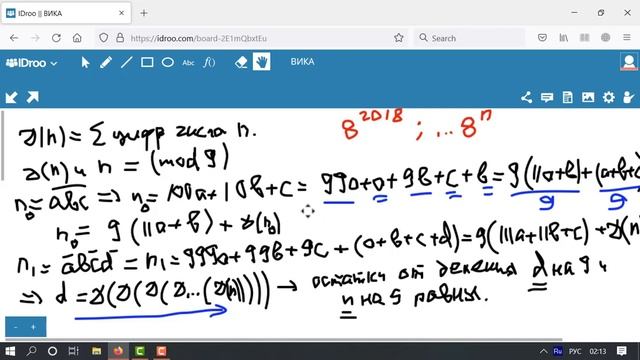 IDroo || ВИКА
https://idroo.com/board-2E1mQbxtEu
IDroo
Abc
f()
ВИКА
8^2018 ; ... 8^n
𝒟(n) = Σ цифр числа n.
𝒟(n) и n = (mod 9)
n₀ = abc ⇒ n₀ = 100a + 10b + c = 99a + a + 9b + c + b = 9(11a+b) + (a+b+c
9
9
n₀ = 9(11a+b) + 𝒟(n₀)
n₁ = abcd = n₁ = 999a + 99b + 9c + (a+b+c+d) = 9(111a+11b+c) + 𝒟(n
⇒ d = 𝒟(𝒟(𝒟(𝒟...(𝒟(n))))) → остатки от деления d на 9 и
n на 9 равны.
РУС
02:13